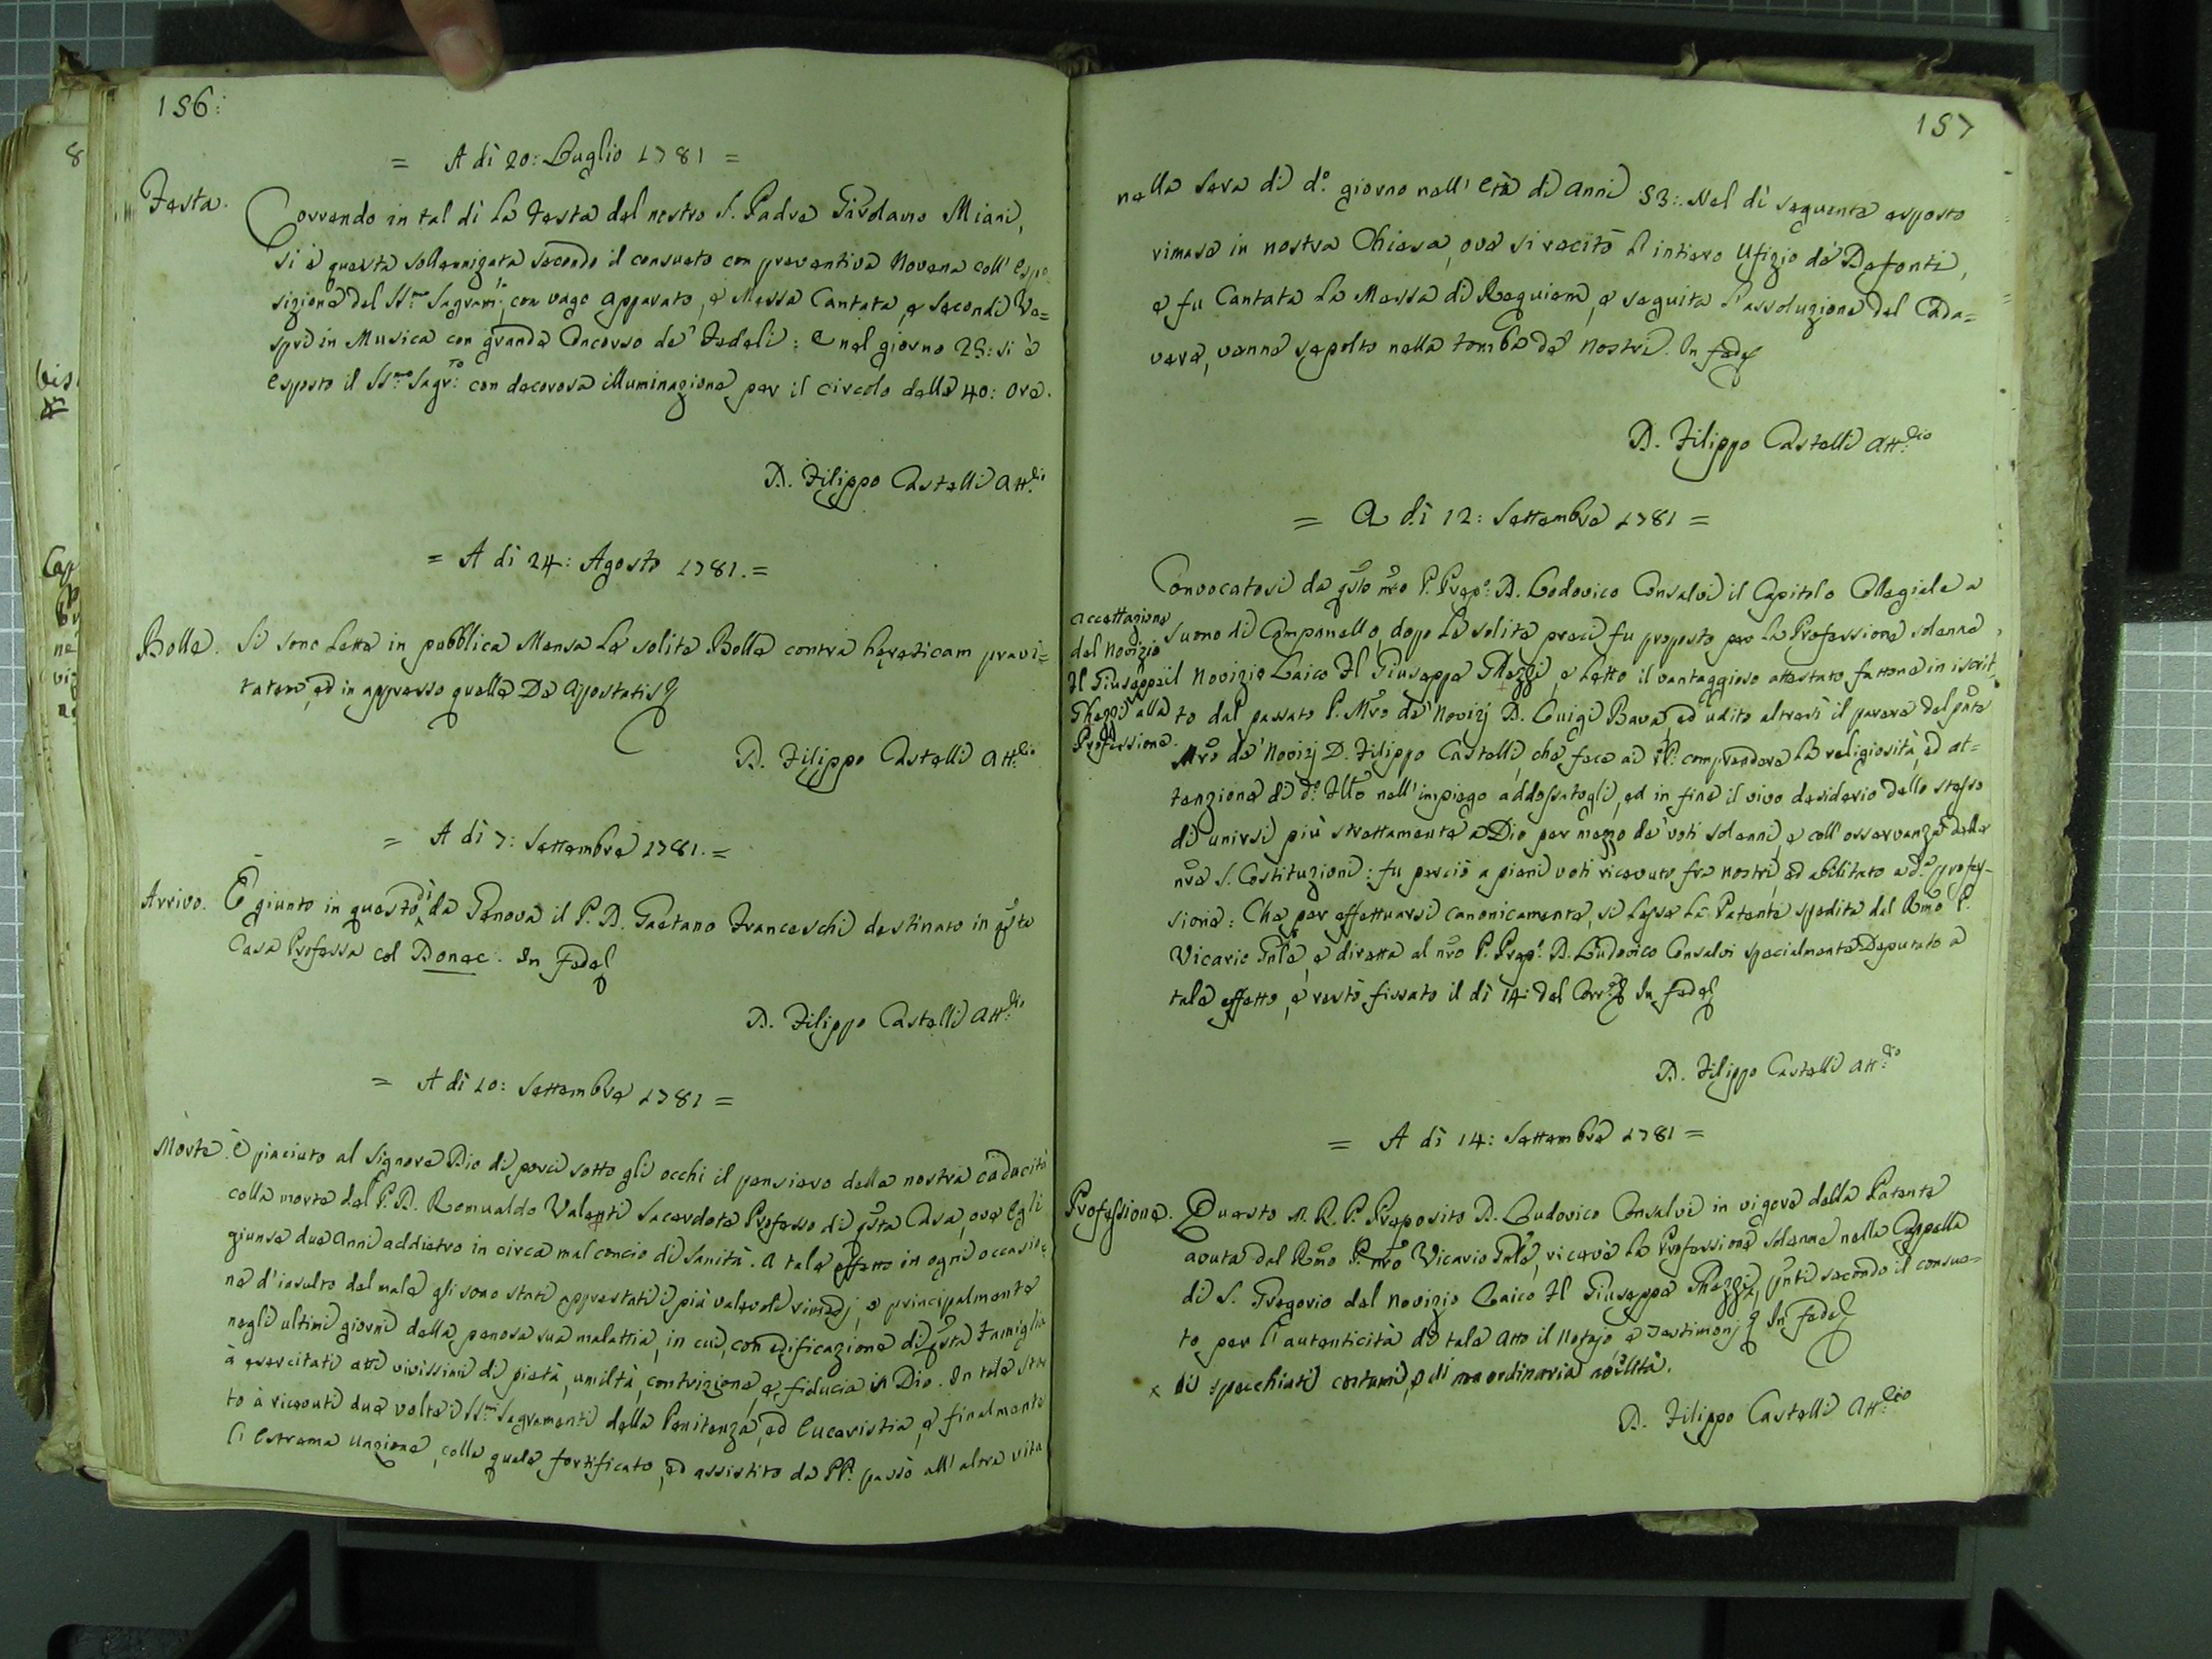 156:
= A di 20: Luglio 1781 =
Festa. Correndo in tal dì la Festa del nostro S. Padre Girolamo Miani,
si è questa sollennizata secondo il consueto con preventiva Novena coll' Espo
sizione del SS.mo Sagram.to, con vago apparato, e Messa Cantata, e secondi Ve=
spri in Musica con grande Concorso de' Fedeli: e nel giorno 25: si è
Esposto il SS.mo Sagr.to: con decorosa illuminazione per il circolo delle 40: ore.
D. Filippo Castelli Att.rio
= A di 24: Agosto 1781. =
Bolle. Si sono Lette in pubblica Mensa Le solite Bolle contra hereticam pravi=
tatem, ed in appresso quelle De Apostatis
D. Filippo Castelli Att.rio
= A di 7: Settembre 1781. =
Arrivo. È giunto in questo dì da Genova il P. D. Gaetano Franceschi destinato in qsta
Casa Professa col Donec. In Fede
D. Filippo Castelli Att.rio
= A di 10: Settembre 1781 =
Morte. È piaciuto al Signore Dio di porci sotto gli occhi il pensiero della nostra caducità
colla morte del P. D. Romualdo Valenti Sacerdote Professo di qsta Casa, ove Egli
giunse due anni addietro in circa mal concio di Sanità. A tale effetto in ogni occasio=
ne d'insulto del male gli sono stati apprestati i più valevoli rimedj, e principalmente
negli ultimi giorni della penosa sua malattia, in cui, con edificazione di qsta Famiglia
à esercitati atti vivissimi di pietà, umiltà, contrizione, e fiducia in Dio. In tale sta
to à ricevuti due volte i SS.mi Sagramenti della Penitenza, ed Eucaristia, e finalmente
l'Estrema Unzione, colla quale fortificato, ed assistito da PP. passò all'altra vita
157
nella sera di d.o giorno nell' Età di anni 53:. Nel dì seguente esposto
rimase in nostra Chiesa, ove si recitò l'intiero Ufizio de' Defonti,
e fu Cantata La Messa di Requiem, e seguita l'assoluzione del Cada=
vere, venne sepolto nella tomba de' nostri. In fede
D. Filippo Castelli Att.rio
= A di 12: Settembre 1781 =
Convocatosi da qsto nro P. Prep.o D. Lodovico Consalvi il Capitolo Collegiale a
Accettazione
del Novizio
Fl Giuseppe
Ghezzi alla
Professione.
suono di Campanello, dopo Le solite preci fu proposto per La Professione solenne
il Novizio Laico Fl Giuseppe Ghezzi, e Letto il vantaggioso attestato fattone in iscrit
to dal passato P. Mro de' Novizj D. Luigi Bava, ed udito altresì il parere del pnte
Mro de' Novizj D. Filippo Castelli, che fece ai PP. comprendere La religiosità, ed at=
tenzione di d.o Fllo nell'impiego addossatogli, ed in fine il vivo desiderio dello stesso
di unirsi più strettamente a Dio per mezzo de' voti solenni, e coll'osservanza delle
nre S. Costituzioni: fu perciò a pieni voti ricevuto fra nostri, ed abilitato a d.a profes-
sione: Che per effettuarsi canonicamente, si Lesse La Patente spedita dal Rmo P.
Vicario Gnle, e diretta al nro P. Prep.o D. Ludovico Consalvi specialmente Deputato a
tale effetto, e restò fissato il dì 14: del Corr.e In fede
D. Filippo Castelli Att.rio
= A di 14: Settembre 1781 =
Professione. Questo M. R. P. Preposito D. Ludovico Consalvi in vigore della Patente
avuta dal Rmo P. nro Vicario Gnle, ricevè La Professione solenne nella Cappella
di S. Gregorio del Novizio Laico Fl Giuseppe Ghezzi, pnti secondo il consue=
to per l'autenticità di tale Atto il Notajo, e Testimonj In fede
x di specchiati costumi, e di non ordinaria abilità.
D. Filippo Castelli Att.rio